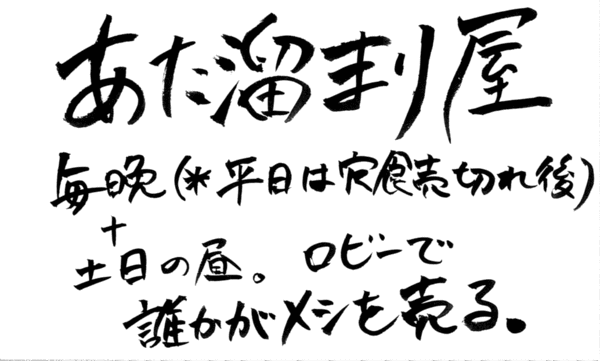 あた溜まり屋
毎晩(*平日は定食売切れ後)
+
土日の昼。ロビーで
誰かがメシを売る。